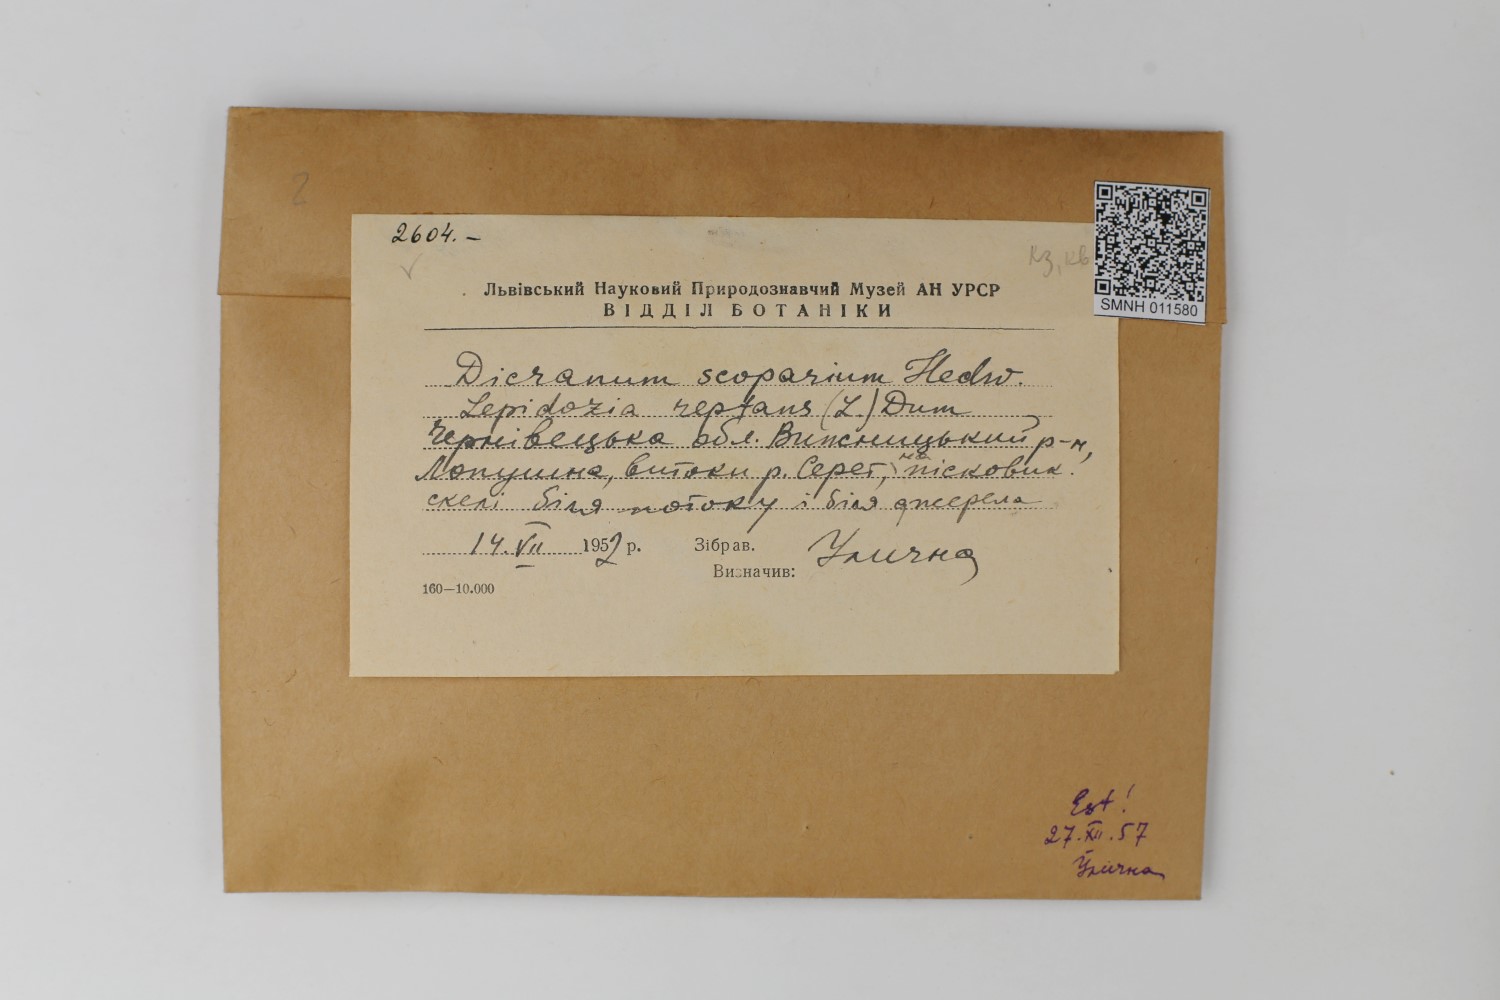 2
2604.–
Кз, кв
SMNH 011580
Львівський Науковий Природознавчий Музей АН УРСР
ВІДДІЛ БОТАНІКИ
Dicranum scoparium Hedw.
Lepidozia reptans (L.) Dum
Чернівецька обл. Вижницький р-н,
Лопушна, витоки р. Серет, на пісковик.
скелі біля потоку і біля джерела
14.VII 1952 р. Зібрав. Улична
Визначив:
160—10.000
Est!
27.XII.57
Улична